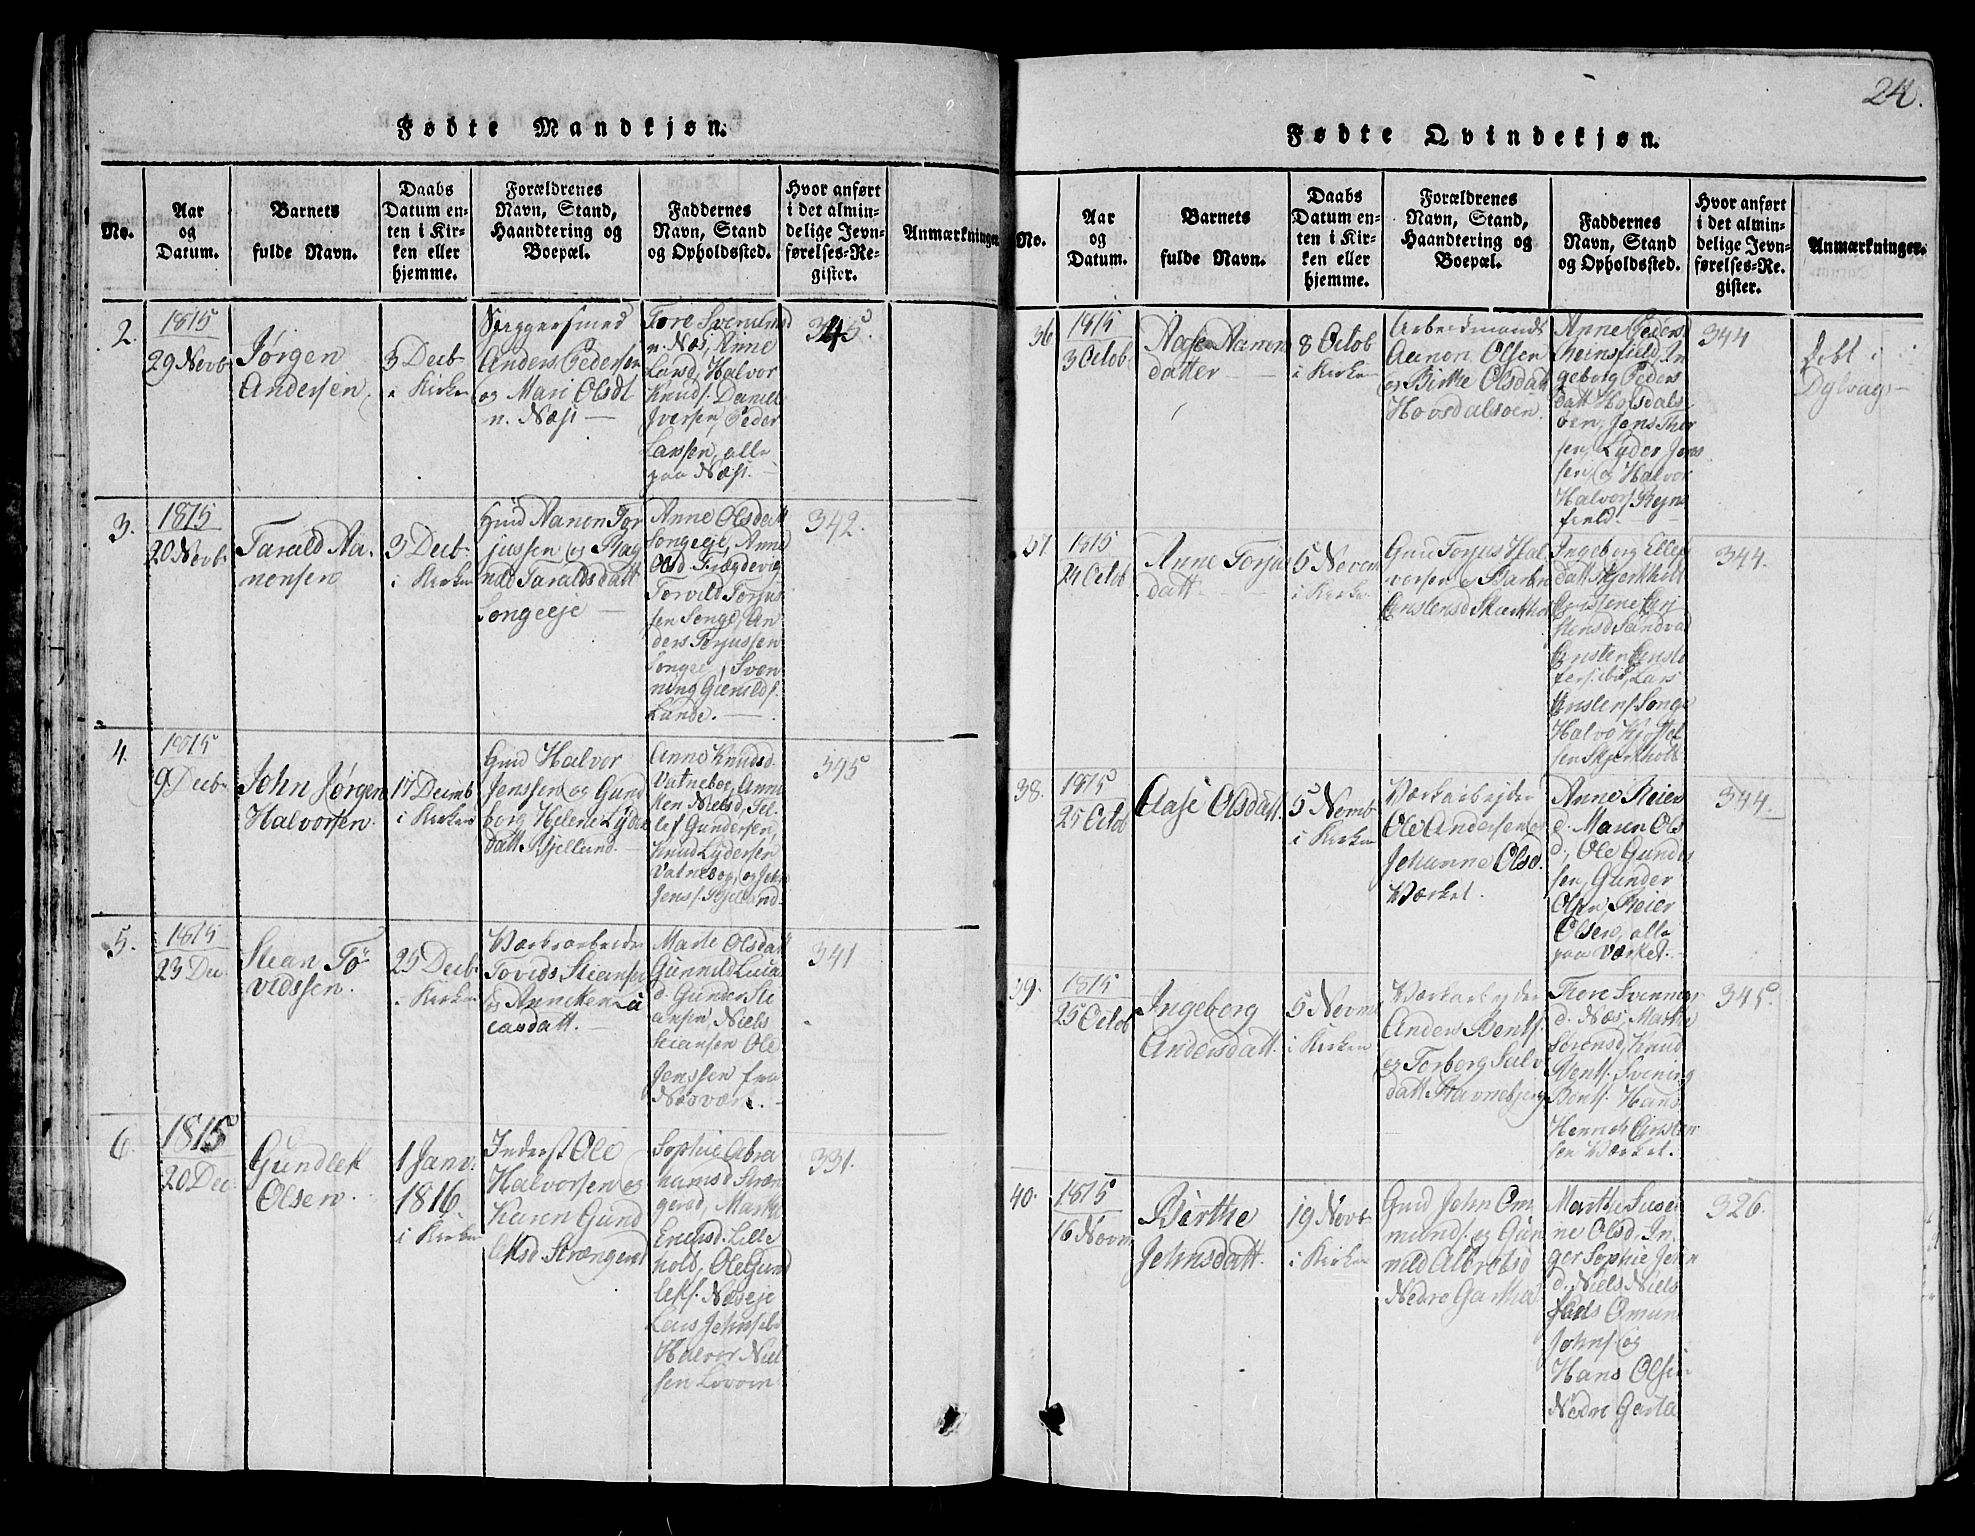 Fødte Mandkjøn.
No.
Aar
og
Datum.
Barnets
fulde Navn.
Daabs
Datum en-
ten i Kir-
ken eller
hjemme.
Forældrenes
Navn, Stand,
Haandtering og
Boepæl.
Faddernes
Navn, Stand
og Opholdssted.
Hvor anført
i det almin-
delige Jevn-
førelses-Re-
gister.
Anmærkninger
2.
1815
29 Novb
Jørgen
Andersen
3 Decb
i Kirken
Anders Pedersen
og Mari Olsdt
n. Næs
Tore
n. Næs, Anne
Land, Halvor
Knuds. Daniel
Iversen, Peder
Larsen, alle
paa Næs.
345.
3.
1815
20 Novb
Tarald Aa-
nonsen
3 Decb
i Kirken
Gmd Aanon Tor
jussen og Mag
nild Taraldsdatt
Songeeje
Anne Olsdatt
Songeeje, Anne
Olsd
Torvild Torjus
sen Songe, An
ders Torjussen
Songe, Sven
ning
Lande.
342.
4.
1815
9 Decb
John Jørgen
Halvorsen
17 Decmb
i Kirken
Gmd Halvor
Jenssen og Gund
borg Helene Lyder
datt. Kjellund.
Anne Knudsd
Vatnebog, Anne
ken Nielsd, Jel-
lef Gundersen,
Knud Lydersen
Vatnebog, og John
Jens. Kjelland.
345
5.
1815
23 Dec
Stean To
vidssen.
25 Decb
i Kirken
Værksarbeider
Tovids Steansen
og Anneken Lu
casdatt.
Marte Olsdatt
Gunnild Luca
d. Gunder Ste
ansen, Niels
Steansen Ole
Jenssen fra
Næsværk.
341
6.
1815
20 Dec
Gundlek
Olsen
1 Janv.
1816.
i Kirken
Inderst Ole
Halvorsen og
Karen Gund
leksd Strængered
Sophie Abra
hamsd Stræn
gered, Marthe
Ericsd. Lille
hold, Ole Gund
leks. Næseje
Halvor Niel
sen
331.
24.
Fødte Qvindekjøn.
No.
Aar
og
Datum.
Barnets
fulde Navn.
Daabs
Datum en-
ten i Kir-
ken eller
hjemme.
Forældrenes
Navn, Stand,
Haandtering og
Boepæl.
Faddernes
Navn, Stand
og Opholdssted.
Hvor anført
i det almin-
delige Jevn-
førelses-Re-
gister.
Anmærkninger.
36
1815
3 Octob
Aase Aanon
datter
8 Octob
i Kirken
Arbeidmands
Aanon Olsen
og Birthe Olsdatt
Hovsdalsoen.
Anne Peders
Reinsfield, In
geborg Peders
datt Hovsdals
oen, Jens Thor
sen, Lyder Jens
sen og Halvor
Halvors. Rejns
field.
344
døbt i
Dybvag
37
1815
24 Octob
Anne Torjus
datt
5 Novem
i Kirken
Gmd Torjus Hal
vorsen og Karen
Christensd Skierkholt
Ingeborg Ellef
datt Skjerkholt
Lars
Songe
Halvo
sen Skjerkholt
344.
38.
1815
25 Octob
Aase Olsdatt.
5 Novmb
i Kirken
Værkarbejder
Ole Andersen og
Johanne Olsd.
Værket.
Anne Reier
d. Maren Ols
d., Ole Gunder
sen, Gunder
Olsen, Reier
Olsen, alle
paa Værket.
344.
39.
1815
25 Octob
Ingeborg
Andersdatt.
5 Novmb
i Kirken
Værkarbejder
Anders Bents.
og Torborg Salv
datt. Ravnebjerg
Thore Svennings
d. Næs, Marthe
Sørensd, Knud
Bents. Svening
Bents. Hans
Henrich Christen
sen Værket.
345.
40.
1815
16 Novm
Birthe
Johnsdatt.
19 Novb
i Kirken
Gmd John Om
munds. og Gun
nild Albretsd
Nedre Garthe
Marthe Suse
ne Olsd. In
ger Sophie John
d. Niels Niels
Omun
Johns. og
Hans Olsen
Nedre Garta
326.